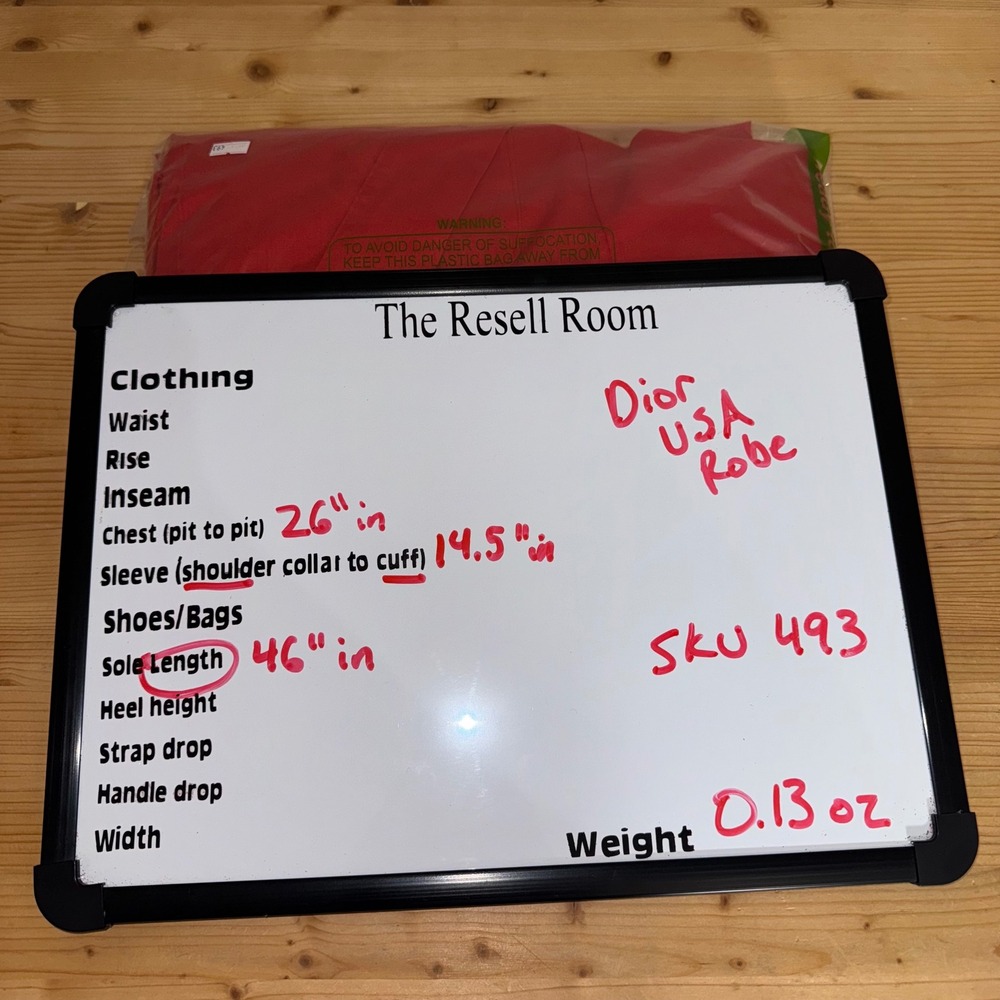 WARNING:
TO AVOID DANGER OF SUFFOCATION,
KEEP THIS PLASTIC BAG AWAY FROM
The Resell Room
Clothing
Dior
USA
Robe
Waist
Rise
Inseam
Chest (pit to pit) 26" in
Sleeve (shoulder collar to cuff) 14.5" in
Shoes/Bags
Sole Length 46" in
SKU 493
Heel height
Strap drop
Handle drop
Width
Weight 0.13 oz